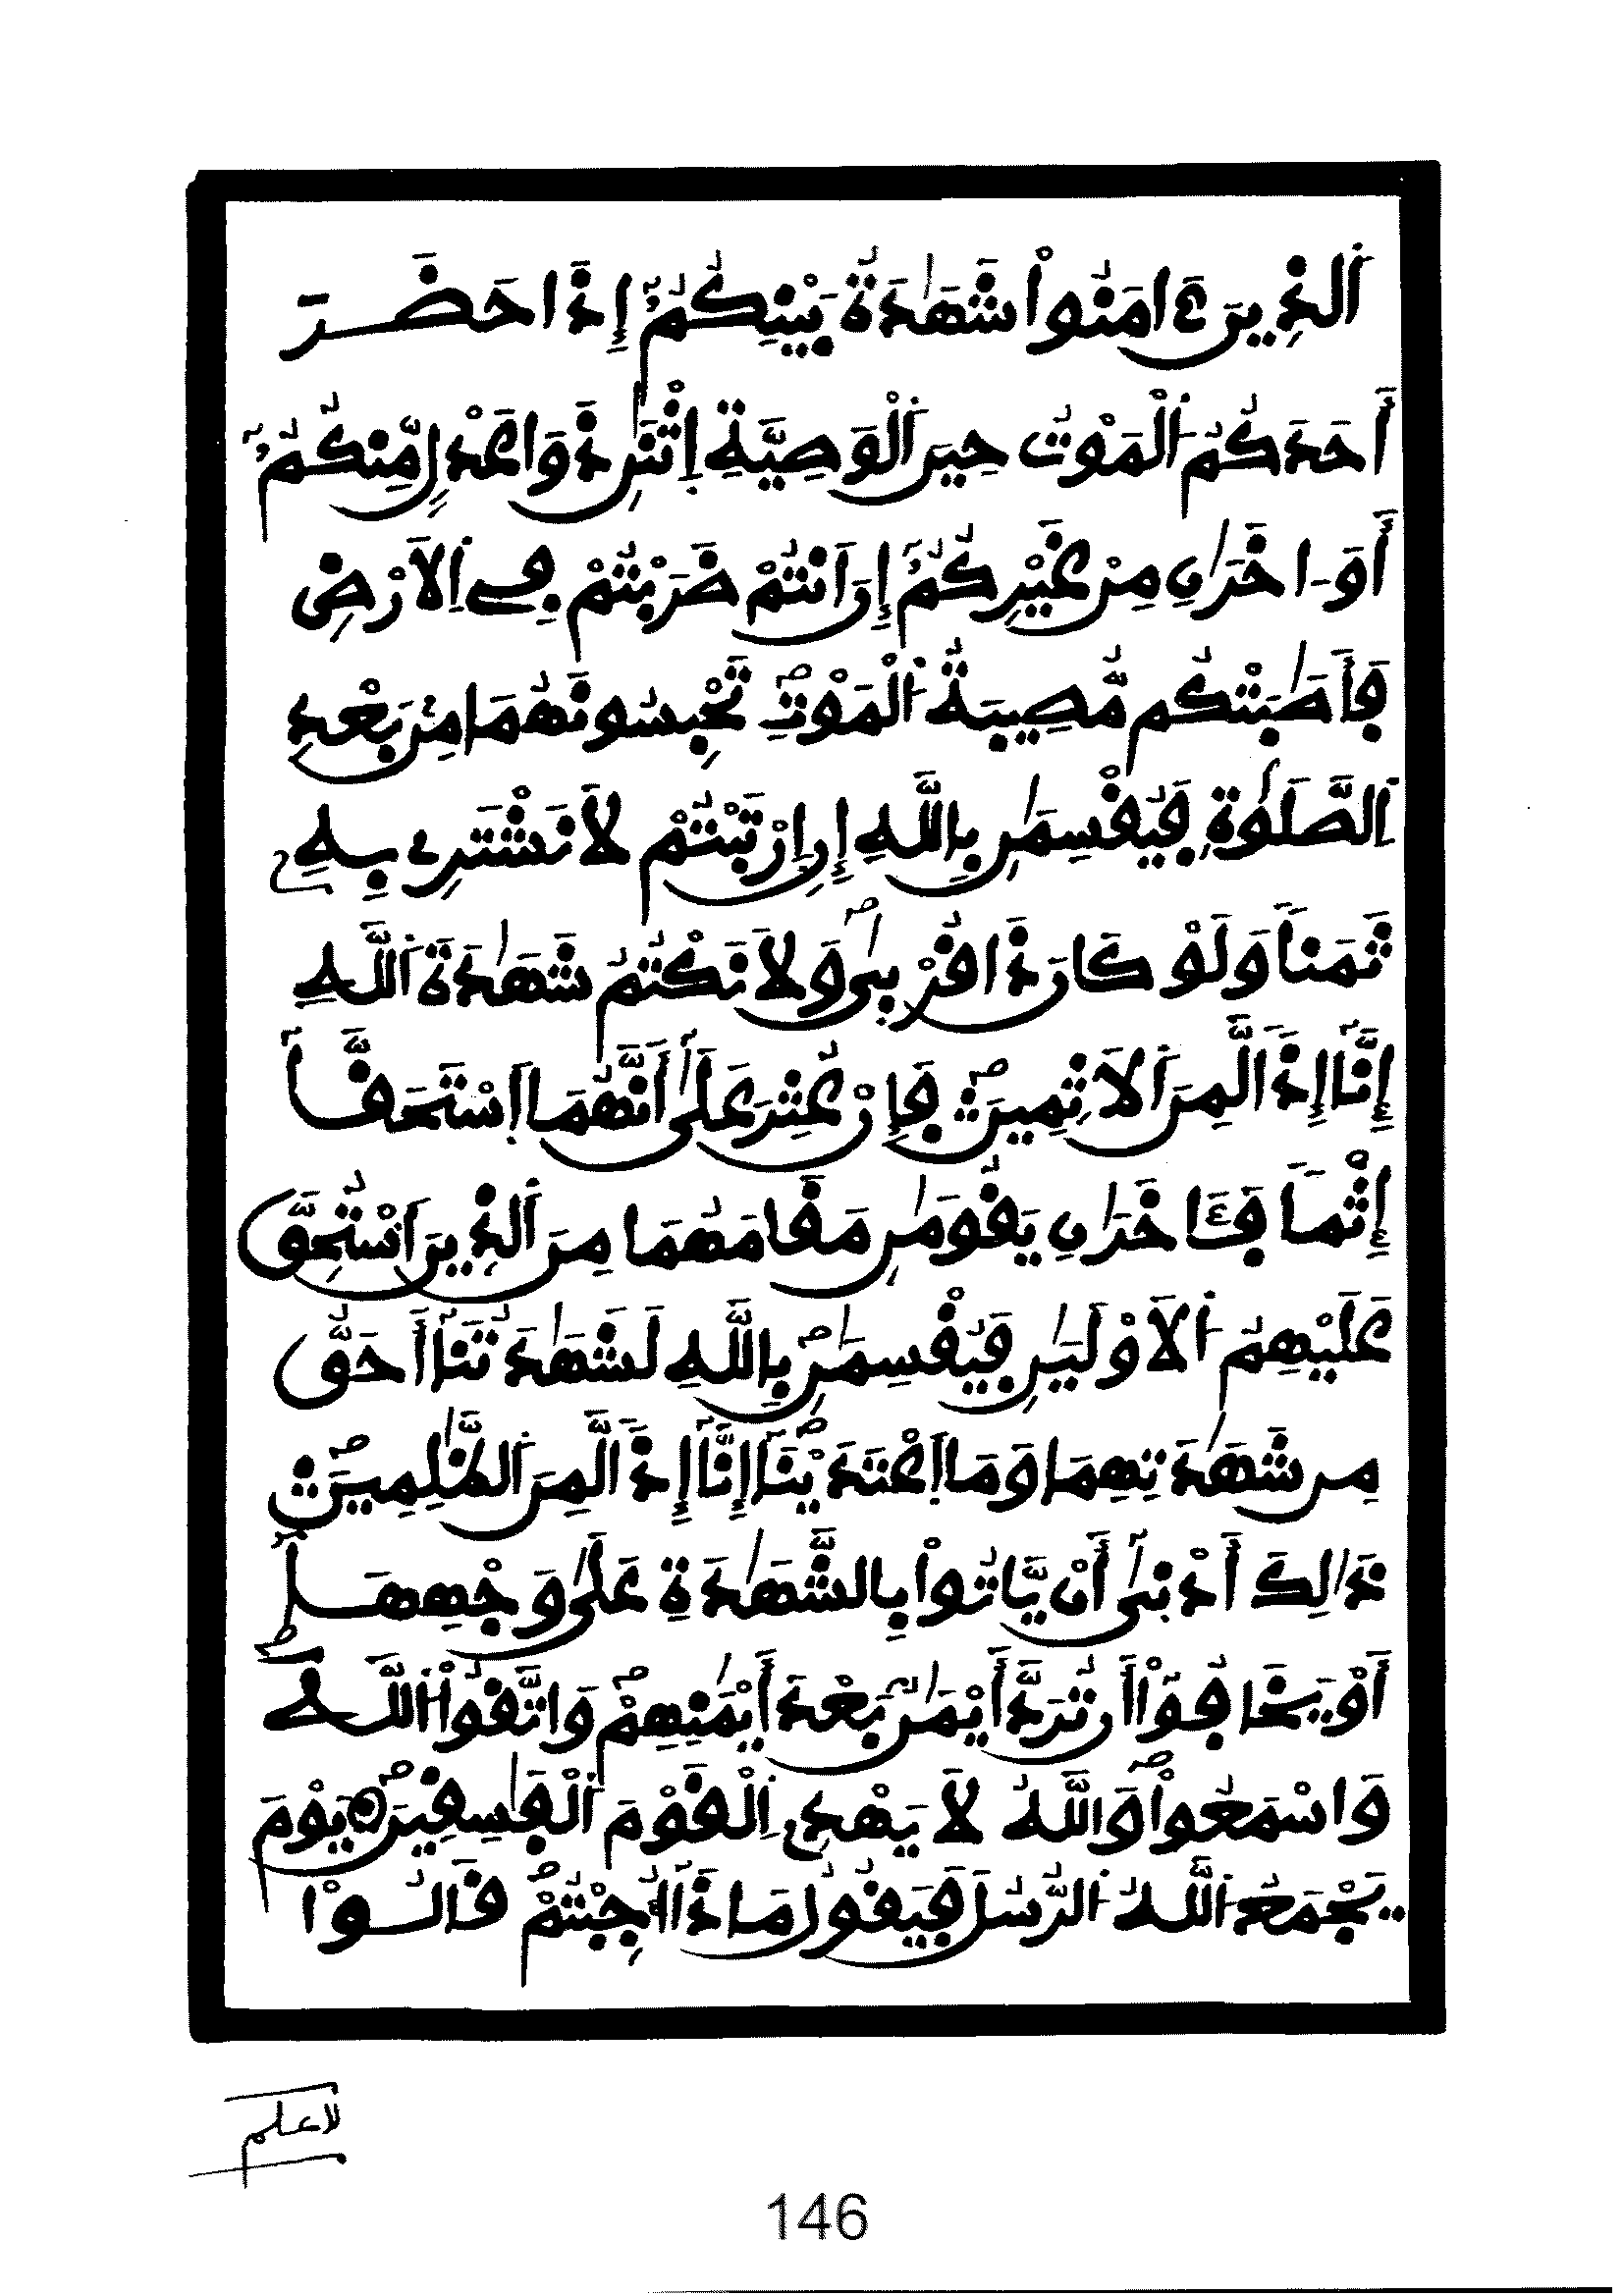 اَ۬لذِينَ ءَامَنُواْ شَهَٰدَةُ بَيْنِكُمُۥٓ إِذَا حَضَرَ
أَحَدَكُمُ اُ۬لْمَوْتُ حِينَ اَ۬لْوَصِيَّةِ اِثْنَٰنِ ذَوَا عَدْلٍ مِّنكُمُۥٓ
أَوَ اٰخَرَٰنِ مِنْ غَيْرِكُمُۥٓ إِنَ اَنتُمْ ضَرَبْتُمْ فِے اِ۬لَارْضِ
فَأَصَٰبَتْكُم مُّصِيبَةُ اُ۬لْمَوْتِ تَحْبِسُونَهُمَا مِنۢ بَعْدِ
اِ۬لصَّلَوٰةِ فَيُقْسِمَٰنِ بِاللَّهِ إِنِ اِرْتَبْتُمْ لَا نَشْتَرِے بِهِۦ
ثَمَناٗ وَلَوْ كَانَ ذَا قُرْبَىٰ وَلَا نَكْتُمُ شَهَٰدَةَ اَ۬للَّهِ
إِنَّآ إِذاٗ لَّمِنَ اَ۬لَاثِمِينَ فَإِنْ عُثِرَ عَلَىٰٓ أَنَّهُمَا اَ۪سْتَحَقَّآ
إِثْماٗ فَـَٔاخَرَٰنِ يَقُومَٰنِ مَقَامَهُمَا مِنَ اَ۬لذِينَ اَ۟سْتُحِقَّ
عَلَيْهِمُ اُ۬لَاوْلَيَٰنِ فَيُقْسِمَٰنِ بِاللَّهِ لَشَهَٰدَتُنَآ أَحَقُّ
مِن شَهَٰدَتِهِمَا وَمَا اَ۪عْتَدَيْنَآ إِنَّآ إِذاٗ لَّمِنَ اَ۬لظَّٰلِمِينَ
ذَٰلِكَ أَدْنَىٰٓ أَنْ يَّاتُواْ بِالشَّهَٰدَةِ عَلَىٰ وَجْهِهَآ
أَوْ يَخَافُوٓاْ أَن تُرَدَّ أَيْمَٰنُۢ بَعْدَ أَيْمَٰنِهِمْ وَاتَّقُواْ اُ۬للَّهَ
وَاسْمَعُواْ وَاللَّهُ لَا يَهْدِے اِ۬لْقَوْمَ اَ۬لْفَٰسِقِينَ يَوْمَ
يَجْمَعُ اُ۬للَّهُ اُ۬لرُّسُلَ فَيَقُولُ مَاذَآ أُجِبْتُمْ قَالُواْ
لا علم
146